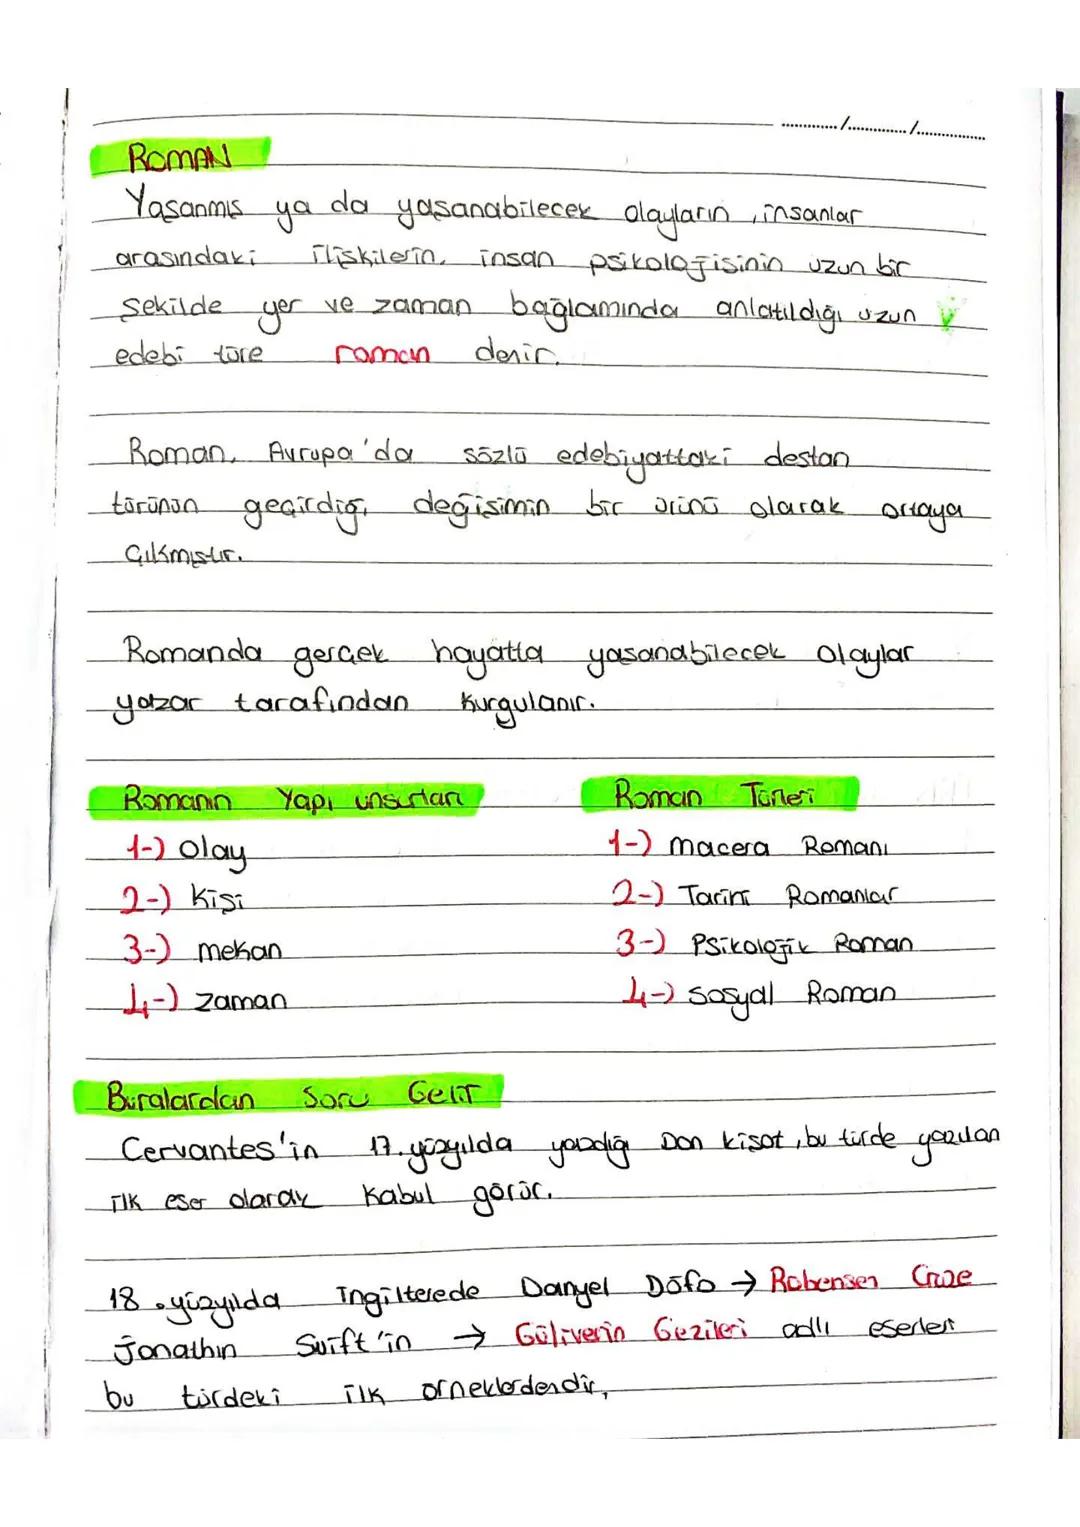 ............../............../................
ROMAN
Yaşanmış ya da yaşanabilecek olayların, insanlar
arasındaki ilişkilerin, insan psikolojisinin uzun bir
şekilde yer ve zaman bağlamında anlatıldığı uzun
edebi türe roman denir.
Roman, Avrupa'da sözlü edebiyattaki destan
türünün geçirdiği değişimin bir ürünü olarak ortaya
çıkmıştır.
Romanda gerçek hayatta yaşanabilecek olaylar
yazar tarafından kurgulanır.
Romanın Yapı unsurları
1-) Olay
2-) Kişi
3-) mekan
4-) zaman
Roman Türleri
1-) macera Romanı
2-) Tarihi Romanlar
3-) Psikolojik Roman
4-) sosyal Roman
Buralardan Soru Gelir
Cervantes'in 17. yüzyılda yazdığı Don kişot, bu türde yazılan
ilk eser olarak kabul görür.
18. yüzyılda İngilterede Danyel Döfo → Robensen Cruze
Jonathın Swift'in → Güliverin Gezileri adlı eserleri
bu türdeki ilk örneklerdendir,